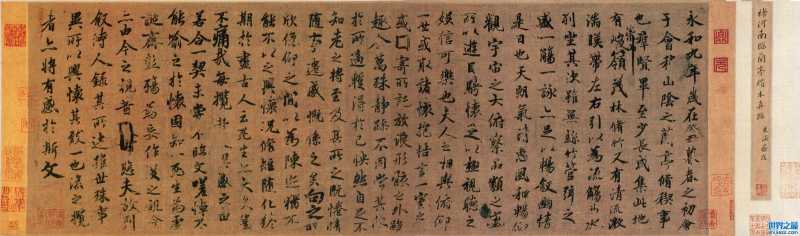 褚河南臨蘭亭絹本真蹟
永和九年歲在癸丑暮春之初會
于會稽山陰之蘭亭脩稧事
也羣賢畢至少長咸集此地
有崇山峻領茂林脩竹又有清流激
湍暎帶左右引以為流觴曲水
列坐其次雖無絲竹管弦之
盛一觴一詠亦足以暢敘幽情
是日也天朗氣清惠風和暢仰
觀宇宙之大俯察品類之盛
所以遊目騁懷足以極視聽之
娛信可樂也夫人之相與俯仰
一世或取諸懷抱悟言一室之內
或因寄所託放浪形骸之外雖
趣舍萬殊靜躁不同當其欣
於所遇蹔得於己怏然自足不
知老之將至及其所之既惓情
隨事遷感慨係之矣向之所
欣俛仰之閒以為陳迹猶不
能不以之興懷況脩短隨化終
期於盡古人云死生亦大矣豈
不痛哉每攬昔人興感之由
若合一契未嘗不臨文嗟悼不
能喻之於懷固知一死生為虛
誕齊彭殤為妄作後之視今
亦由今之視昔悲夫故列
敘時人錄其所述雖世殊事
異所以興懷其致一也後之攬
者亦將有感於斯文
世界之最